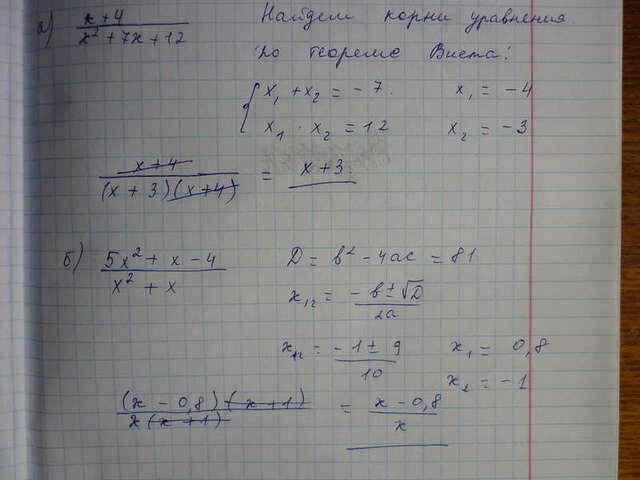 а) x+4 / x² + 7x + 12
Найдем корни уравнения
по теореме Виета:
{ x₁ + x₂ = -7. x₁ = -4
x₁ · x₂ = 12 x₂ = -3
x+4 / (x + 3)(x+4) = x+3.
б) 5x² + x - 4 / x² + x
D = b² - 4ac = 81
x₁₂ = -b ± √D / 2a
x₁₂ = -1 ± 9 / 10 x₁ = 0,8
x₂ = -1
(x - 0,8)(x+1) / x(x+1) = x - 0,8 / x